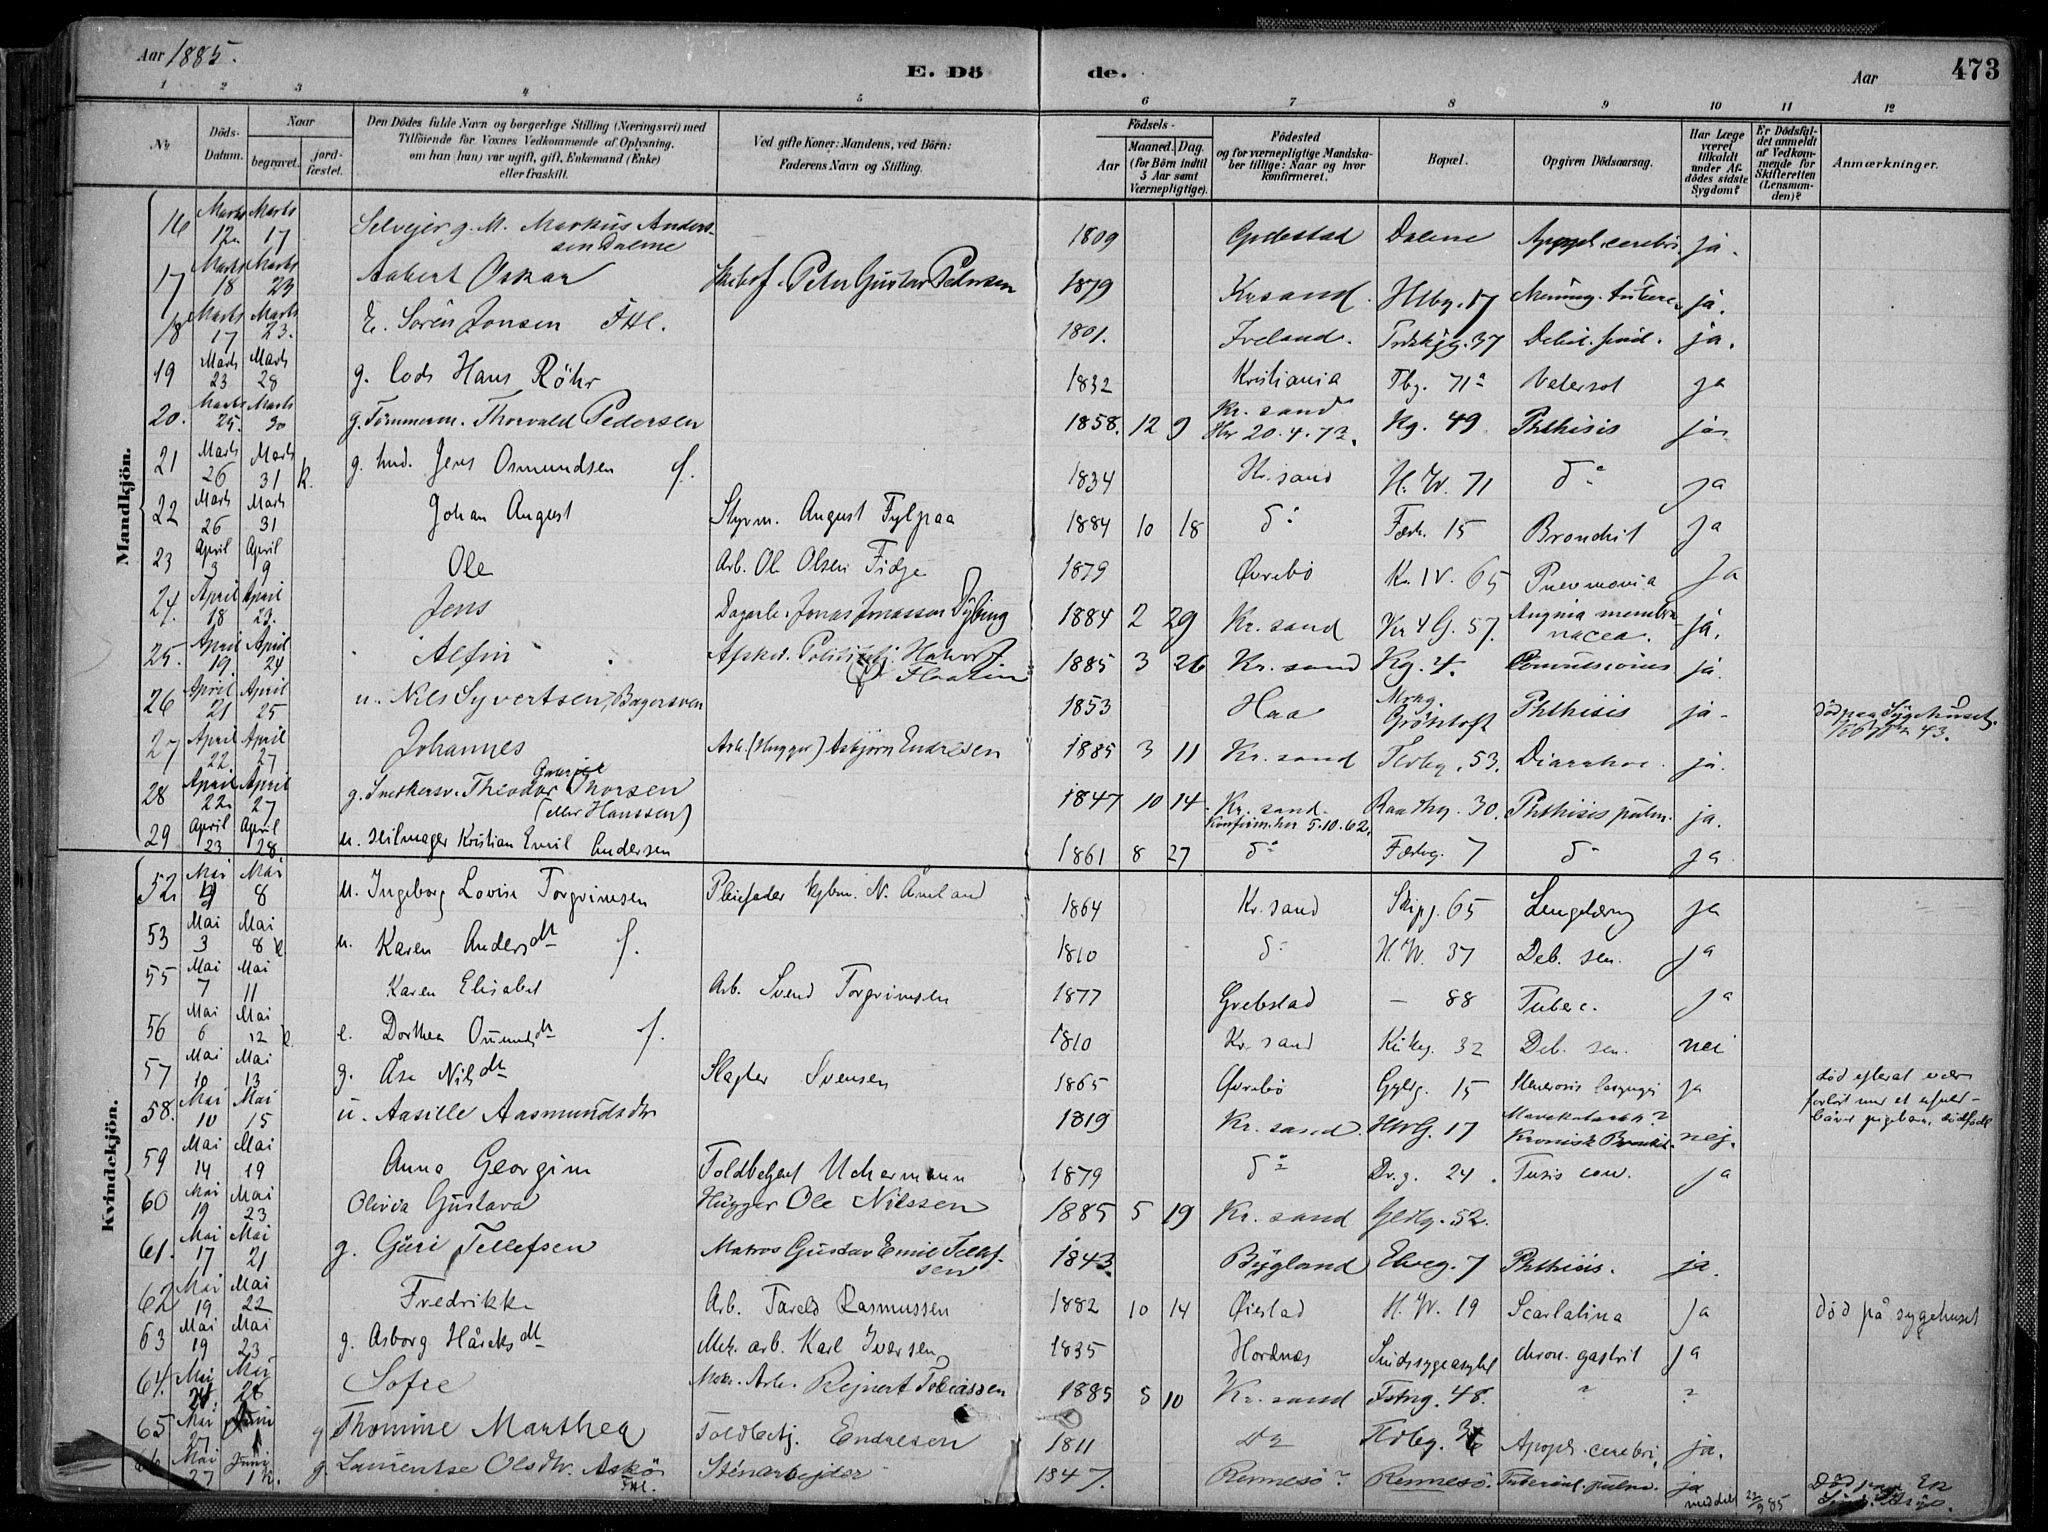 Aar 1885.
E. Dö de.
Aar
473
1 2 3 4 5 6 7 8 9 10 11 12
Nr.
Döds-Datum.
Naar
begravet.
jord-fæstet.
Den Dödes fulde Navn og borgerlige Stilling (Næringsvei) med
Tilföiende for Voxnes Vedkommende af Oplysning,
om han (hun) var ugift, gift, Enkemand (Enke)
eller fraskilt.
Ved gifte Koner: Mandens, ved Börn:
Faderens Navn og Stilling.
Födsels-
Aar
Maaned. Dag.
(for Börn indtil
5 Aar samt
Værnepligtige).
Födested
og for værnepligtige Mandska-
ber tillige: Naar og hvor
konfirmeret.
Bopæl.
Opgiven Dödsaarsag.
Har Læge
været
tilkaldt
under Af-
dödes sidste
Sygdom?
Er Dödsfal-
det anmeldt
af Vedkom-
mende for
Skifteretten
(Lensman-
den)?
Anmærkninger.
Mandkjön.
16 Marts 12 Marts 17 Selveier g. M. Markus Anders-
sen Dalene 1809 Dalene Apopl. cerebri ja.
17 Marts 18 Marts 23 Aabert Oskar Peter Gustav Pedersen 1879 Krsand. Hlbg. 17 ja.
18 Marts 17 Marts 23. E. Sören Jonsen Fttl. 1801. Iveland. 37 Debil. senil. ja.
19 Marts 23 Marts 28 g. Lods Hans Röhr 1832 Kristiania Tbg. 71a Vatersot ja
20. Marts 25. Marts 30 g. Tömmerm. Thorvald Pedersen 1858. 12 9 Kr. sand
20.4.73. Kg. 49 Phthisis ja
21 Marts 26 Marts 31 k. g. hmd. Jens Osmundsen f. 1834 Kr. sand H. W. 71 do ja
22 Marts 26 Marts 31 Johan August Styrm. August Fylpaa 1884 10 18 do Fæstn. 15 Bronchit ja
23 April 3 April 9 Ole Arb. Ol Olsen Fidje 1879 Øvrebö Kr. IV. 65 Pnevmonia ja
24. April 18 April 23. Jens Dagarb. Jonas Jonassen Dybing 1884 2 29 Kr. sand Kr 4 G. 57. Angina membra-
nacea. ja.
25. April 19 April 24 Alfin Afsked. Politibetj. Halvor J
Flaatin 1885 3 26 Kr. sand Kg. 4. Convulsiones ja.
26 April 21 April 25 u. Nils Syvertsen, Bagersven 1853 Haa Phthisis ja. död paa Sygehuset.
43.
27 April 22 April 27 Johannes Arb. (Hugger) Asbjörn Endresen 1885 3 11 Kr. sand 53. Diarrhoe. ja.
28 April 22 April 27 g. Snekkersv. Theodor Gabriel Thorsen
(eller Hanssen) 1847 10 14. Kr. sand.
Konfirm. her 5.10.62. Raadhg. 30. Phthisis pulm. ja.
29 April 23 April 28 u. Seilmager Kristian Emil Andersen 1861 8 27 do Fæstng. 7 do ja
Kvindekjön.
52. Mai Mai 8 u. Ingeborg Lovise Torgrimsen Pleiefader kjbm. N. Åneland 1864 Kr. sand Skipg. 65 Lungetæring ja
53 Mai 3 Mai 8 k u. Karen Andersdtr f. 1810 do H. W. 37 Deb. sen. ja
55 Mai 7 Mai 11 Karen Elisabet Arb. Svend Torgrimsen 1877 Grebstad — 88 Tuberc. ja
56 Mai 6 Mai 12 k. e. Dorthea Osmundsdtr f. 1810 Kr. sand Kirkeg. 32 Deb. sen. nei
57 Mai 10 Mai 13 g. Åse Nilsdtr Slagter Svensen 1865 Øvrebö Gyldg. 15 Stenosis laryngis ja död efterat være
forlöst med et
baaret pigebarn, dödfödt
58. Mai 10 Mai 15 u. Aasille Aasmundsdtr 1819 Kr. sand. HWG. 17 Kronisk Bronkit. nej.
59 Mai 14 Mai 19 Anna Georgine Toldbetjent Uchermann 1879 do Dr.g. 24. Tusis conv. ja
60 Mai 19 Mai 23 Olivia Gustava Hugger Ole Nilssen 1885 5 19 Kr. sand Gldlg. 52.
61. Mai 17 Mai 21 g. Guri Tellefsen Matros Gustav Emil Tellef-
sen 1843. Bygland Elveg. 7 Phthisis. ja.
62 Mai 19 Mai 22 Fredrikke Arb. Tarald Rasmussen 1882 10 14 Øiestad H. W. 19 Scarlatina ja død på sygehuset
63 Mai 19 Mai 23 g. Asborg Håreksdtr Mek. arb. Karl Iversen 1835 Hordnæs Sindssygeasylet chron. gastrit ja
64. Mai Mai 28 Sofie Mek. Arb. Rejnert Tobiassen 1885 5 10 Kr. sand Fstng. 48. ? ?
65 Mai 27 Juni 1 g Thomine Marthea Toldbetj. Endresen 1811 Do Apopl. cerebri. ja.
66 Mai 27 Juni 1 k. g. Laurentse Olsdtr. Askö
Fttl. Stenarbejder 1847. Rennesö? Rennesö. Tubercul. pulm. ja
meddelt 22/9 85